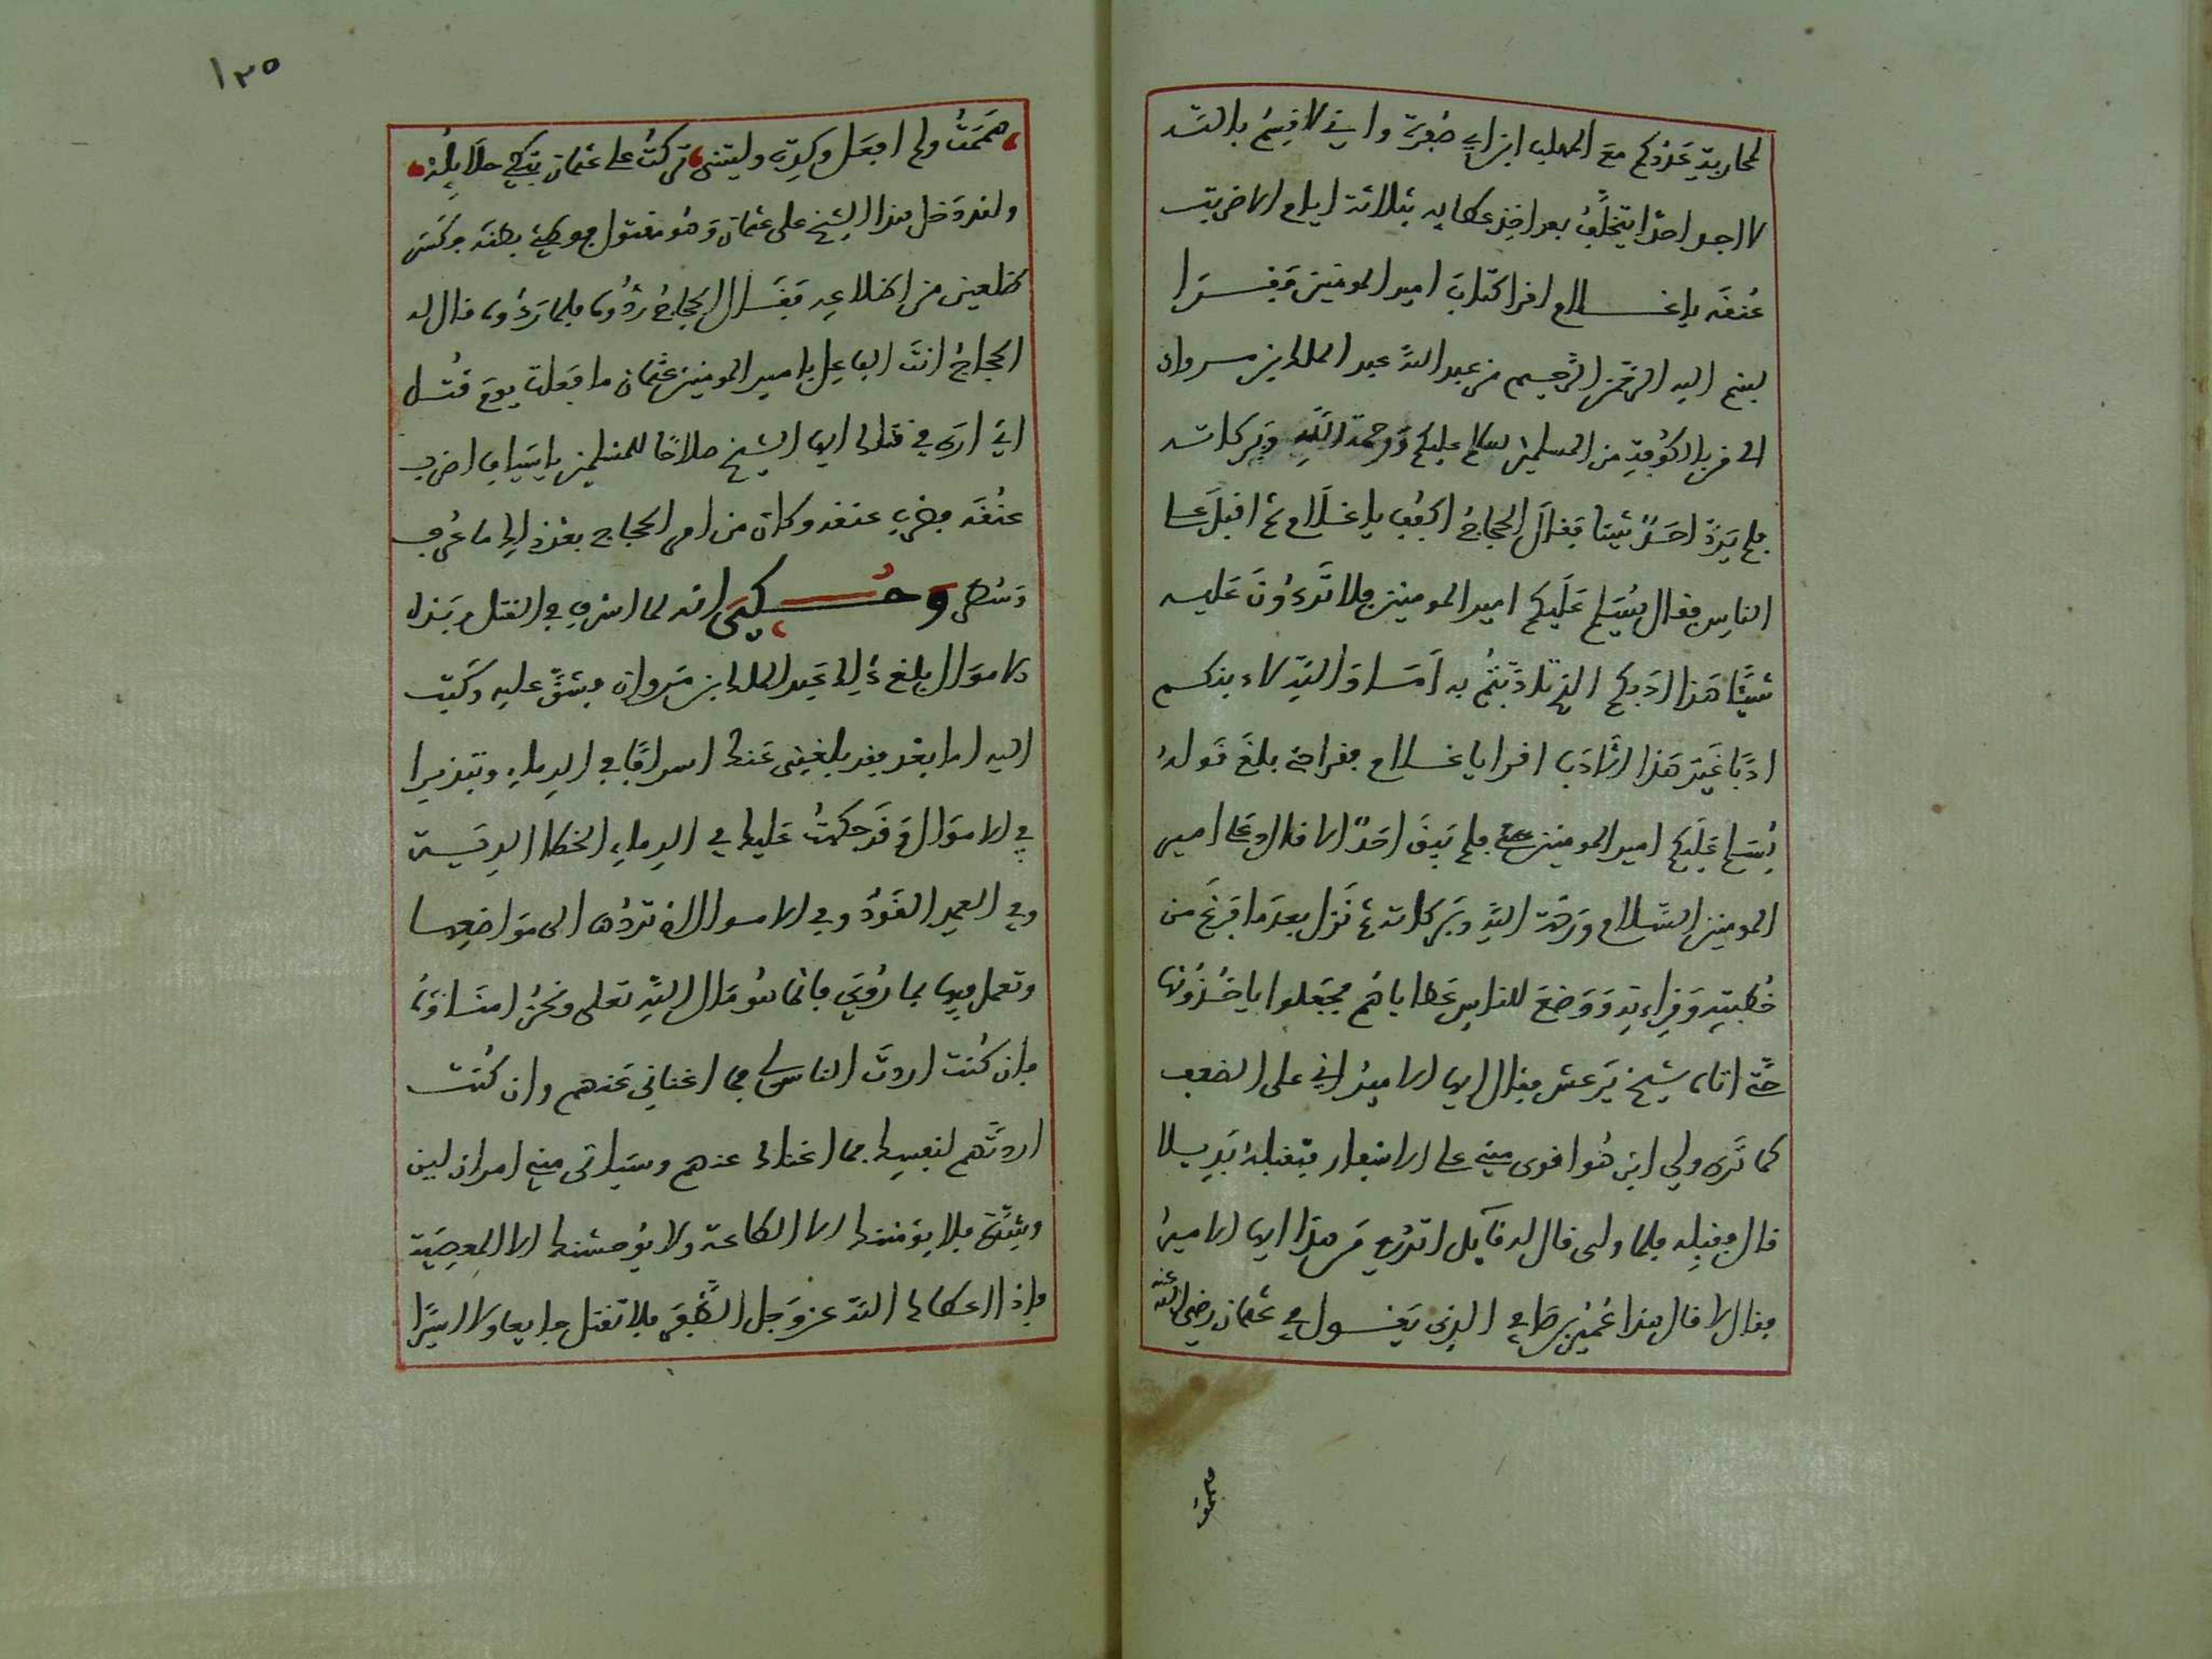 لمحاربة عدوكم مع المهلب ابن ابي صفرة واني لاقسم بالله
لا اجد احدا يتخلف بعد اخذ عطايه بثلاثة ايام الا ضربت
عنقه يا غلام اقرا كتاب امير المومنين فقرا
بسم الله الرحمن الرحيم من عبد الله عبد الملك بن مروان
الى من بالكوفة من المسلمين سلام عليكم ورحمة الله وبركاته
فلم يرد احد شيئا فقال الحجاج اكفف يا غلام ثم اقبل على
الناس فقال يسلم عليكم امير المومنين فلا تردون عليه
شيئا هذا ادبكم الذي تادبتم به اما والله لاءدبنكم
ادبا غير هذا الادب اقرا يا غلام فقرا حتى بلغ قوله
يسلم عليكم امير المومنين فلم يبق احد الا قال وعلى امير
المومنين السلام ورحمة الله وبركاته ثم نزل بعد ما فرغ من
خطبته وقراءته ووضع للناس عطاياهم فجعلوا ياخذونها
حتى اتاه شيخ يرعش فقال ايها الامير اني على الضعف
كما ترى ولي ابن هو اقوى مني على الاسفار فتقبله بديلا
قال فقبله فلما ولى قال له قايل اتدري من هذا ايها الامير
فقال لا قال هذا عمير بن ضابي الذي يقول في عثمان رضي الله عنه
هممت
١٣٥
هممت ولم افعل وكدت وليتني تركت على عثمان تبكي حلايله
ولقد دخل هذا الشيخ على عثمان وهو مقتول فوطئ بطنه وكسر
ضلعين من اضلاعه فقال الحجاج ردوه فلما ردوه قال له
الحجاج انت الفاعل بامير المومنين عثمان ما فعلت يوم قتل
اني ارى في قتلك ايها الشيخ صلاحا للمسلمين يا سياف اضرب
عنقه فضرب عنقه وكان من امر الحجاج بعد ذلك ما عرف
وسطر وحكي انه لما اسرف في القتل وبذل
الاموال بلغ ذلك عبد الملك بن مروان فشق عليه وكتب
اليه اما بعد فقد بلغني عنك اسراف في الدماء وتبذير
في الاموال وقد حكمت عليك في الدماء الخطا الدية
وفي العمد القود وفي الاموال ان تردها الى مواضعها
وتعمل فيها بما رويي فانما هو مال الله تعلى ونحن امناؤه
فان كنت اردت الناس لي فما اغناني عنهم وان كنت
اردتهم لنفسك فما اغناك عنهم وسياتي مني امران لين
وشدة فلا يؤمننك الا الطاعة ولا يوحشنك الا المعصية
فاذا اعطاك الله عز وجل الظفر فلا تقتل جايعا ولا اسيرا